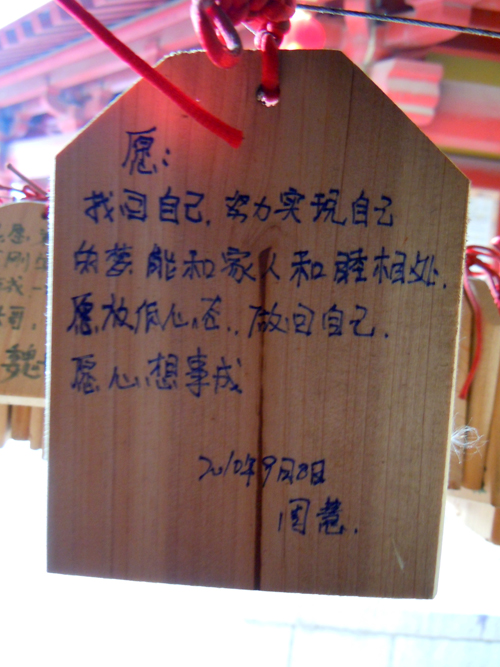 愿：
找回自己，努力实现自己
的梦，能和家人和睦相处，
愿放低心态，做回自己，
愿心想事成
2010年9月8日
周慧.
愿
刚
我一
哥，
魏